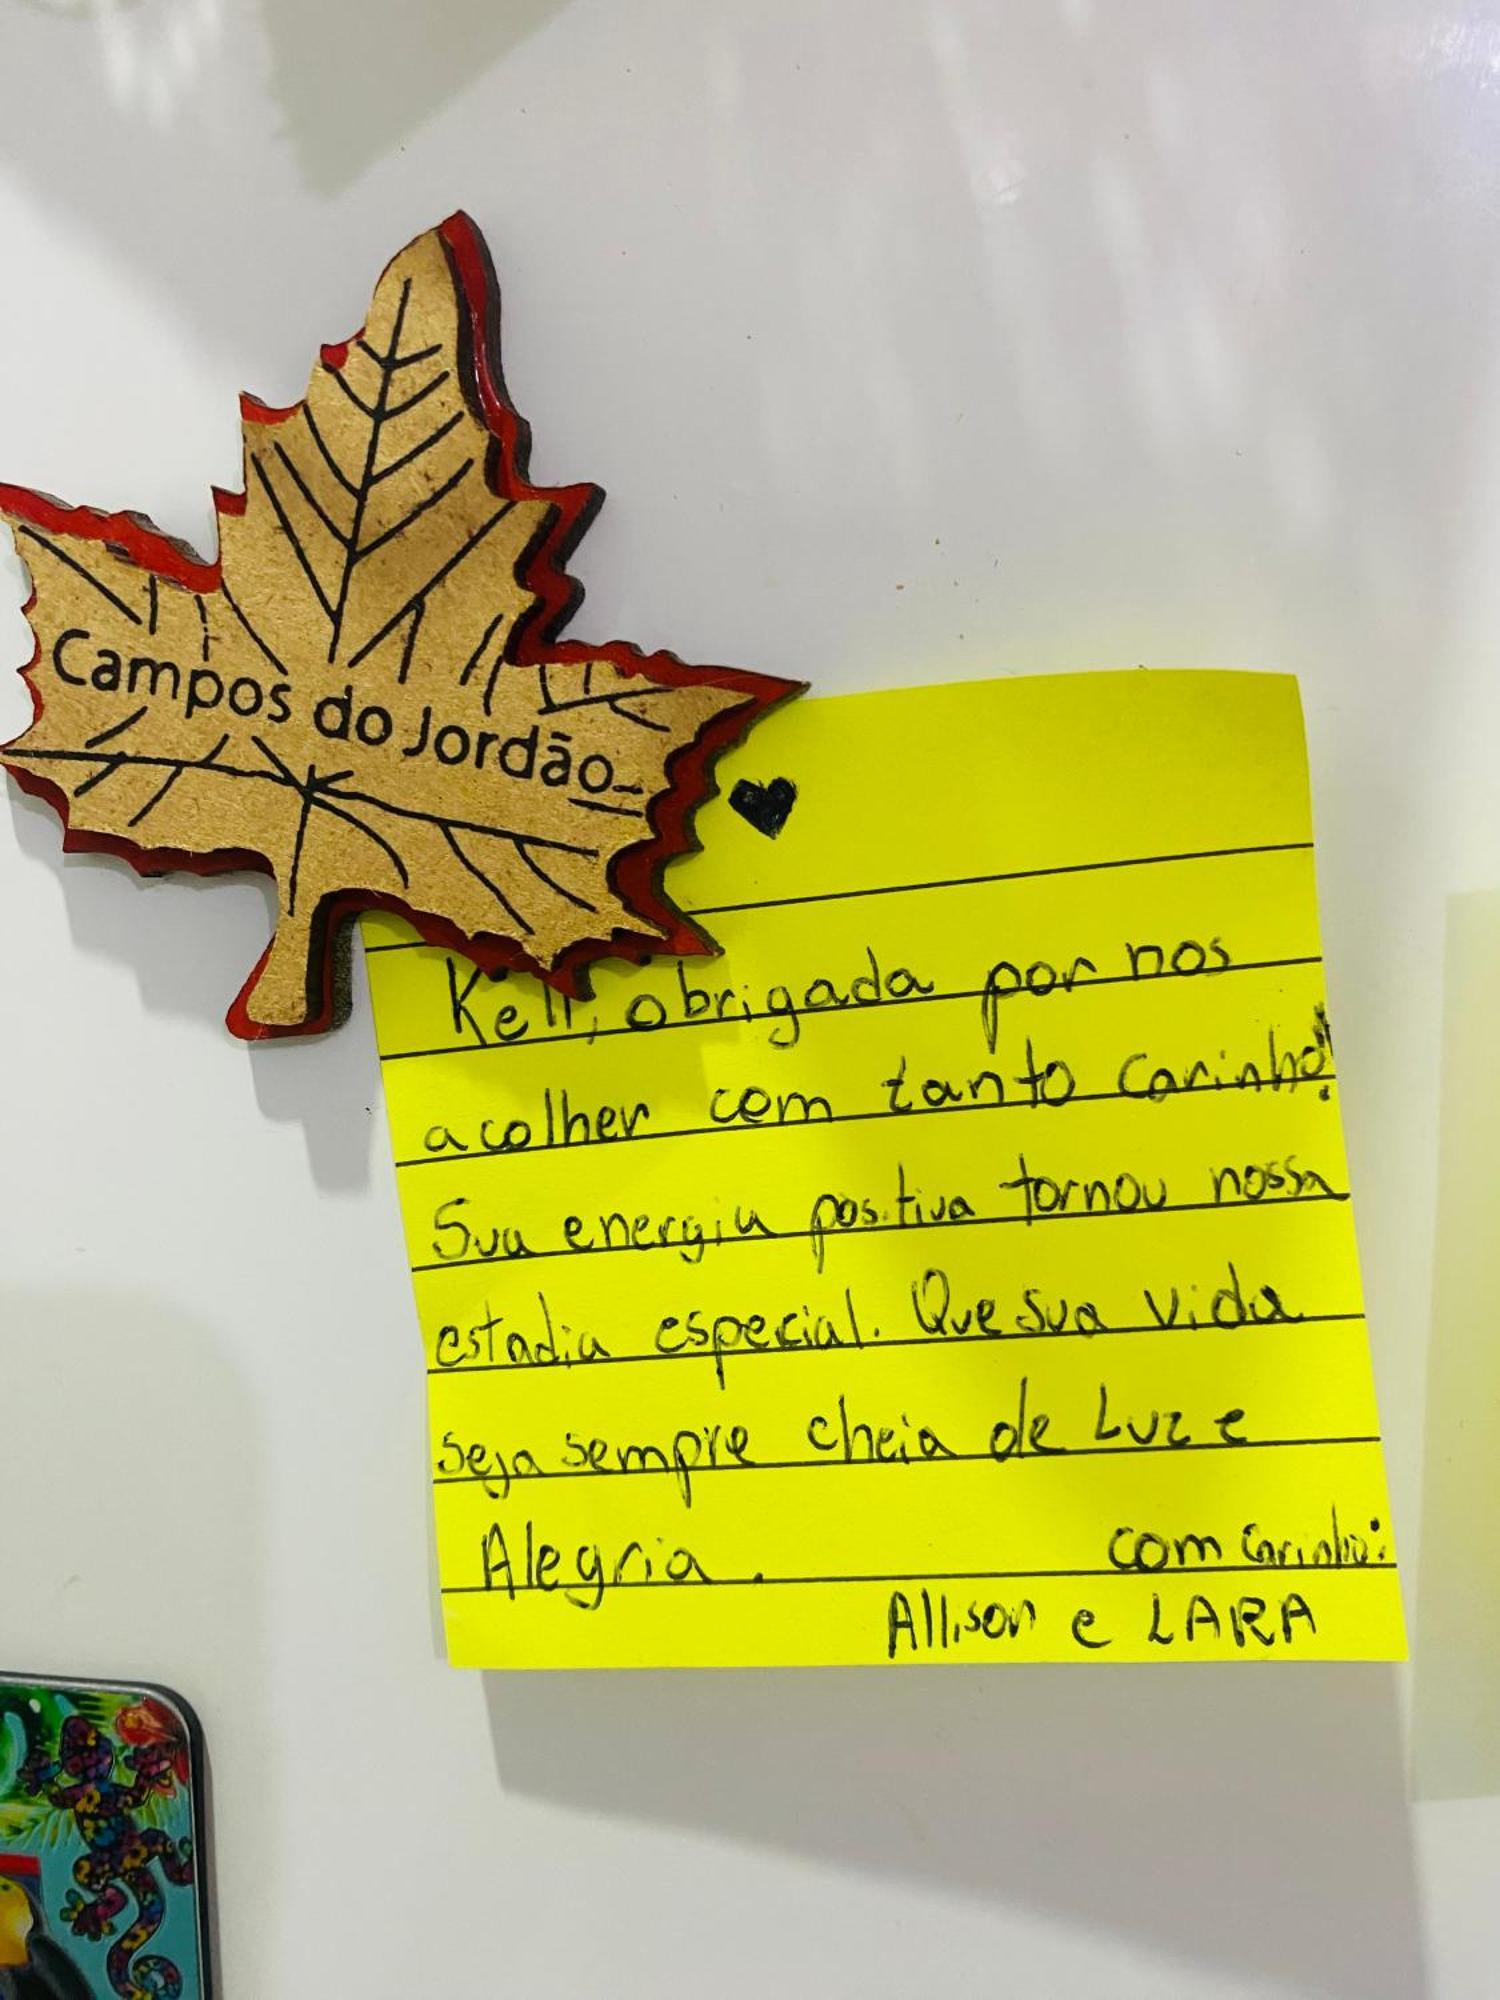 Campos do Jordão
Kell, obrigada por nos
acolher com tanto carinho!
Sua energia positiva tornou nossa
estadia especial. Que sua vida
seja sempre cheia de Luz e
Alegria. com carinho:
Allison e LARA